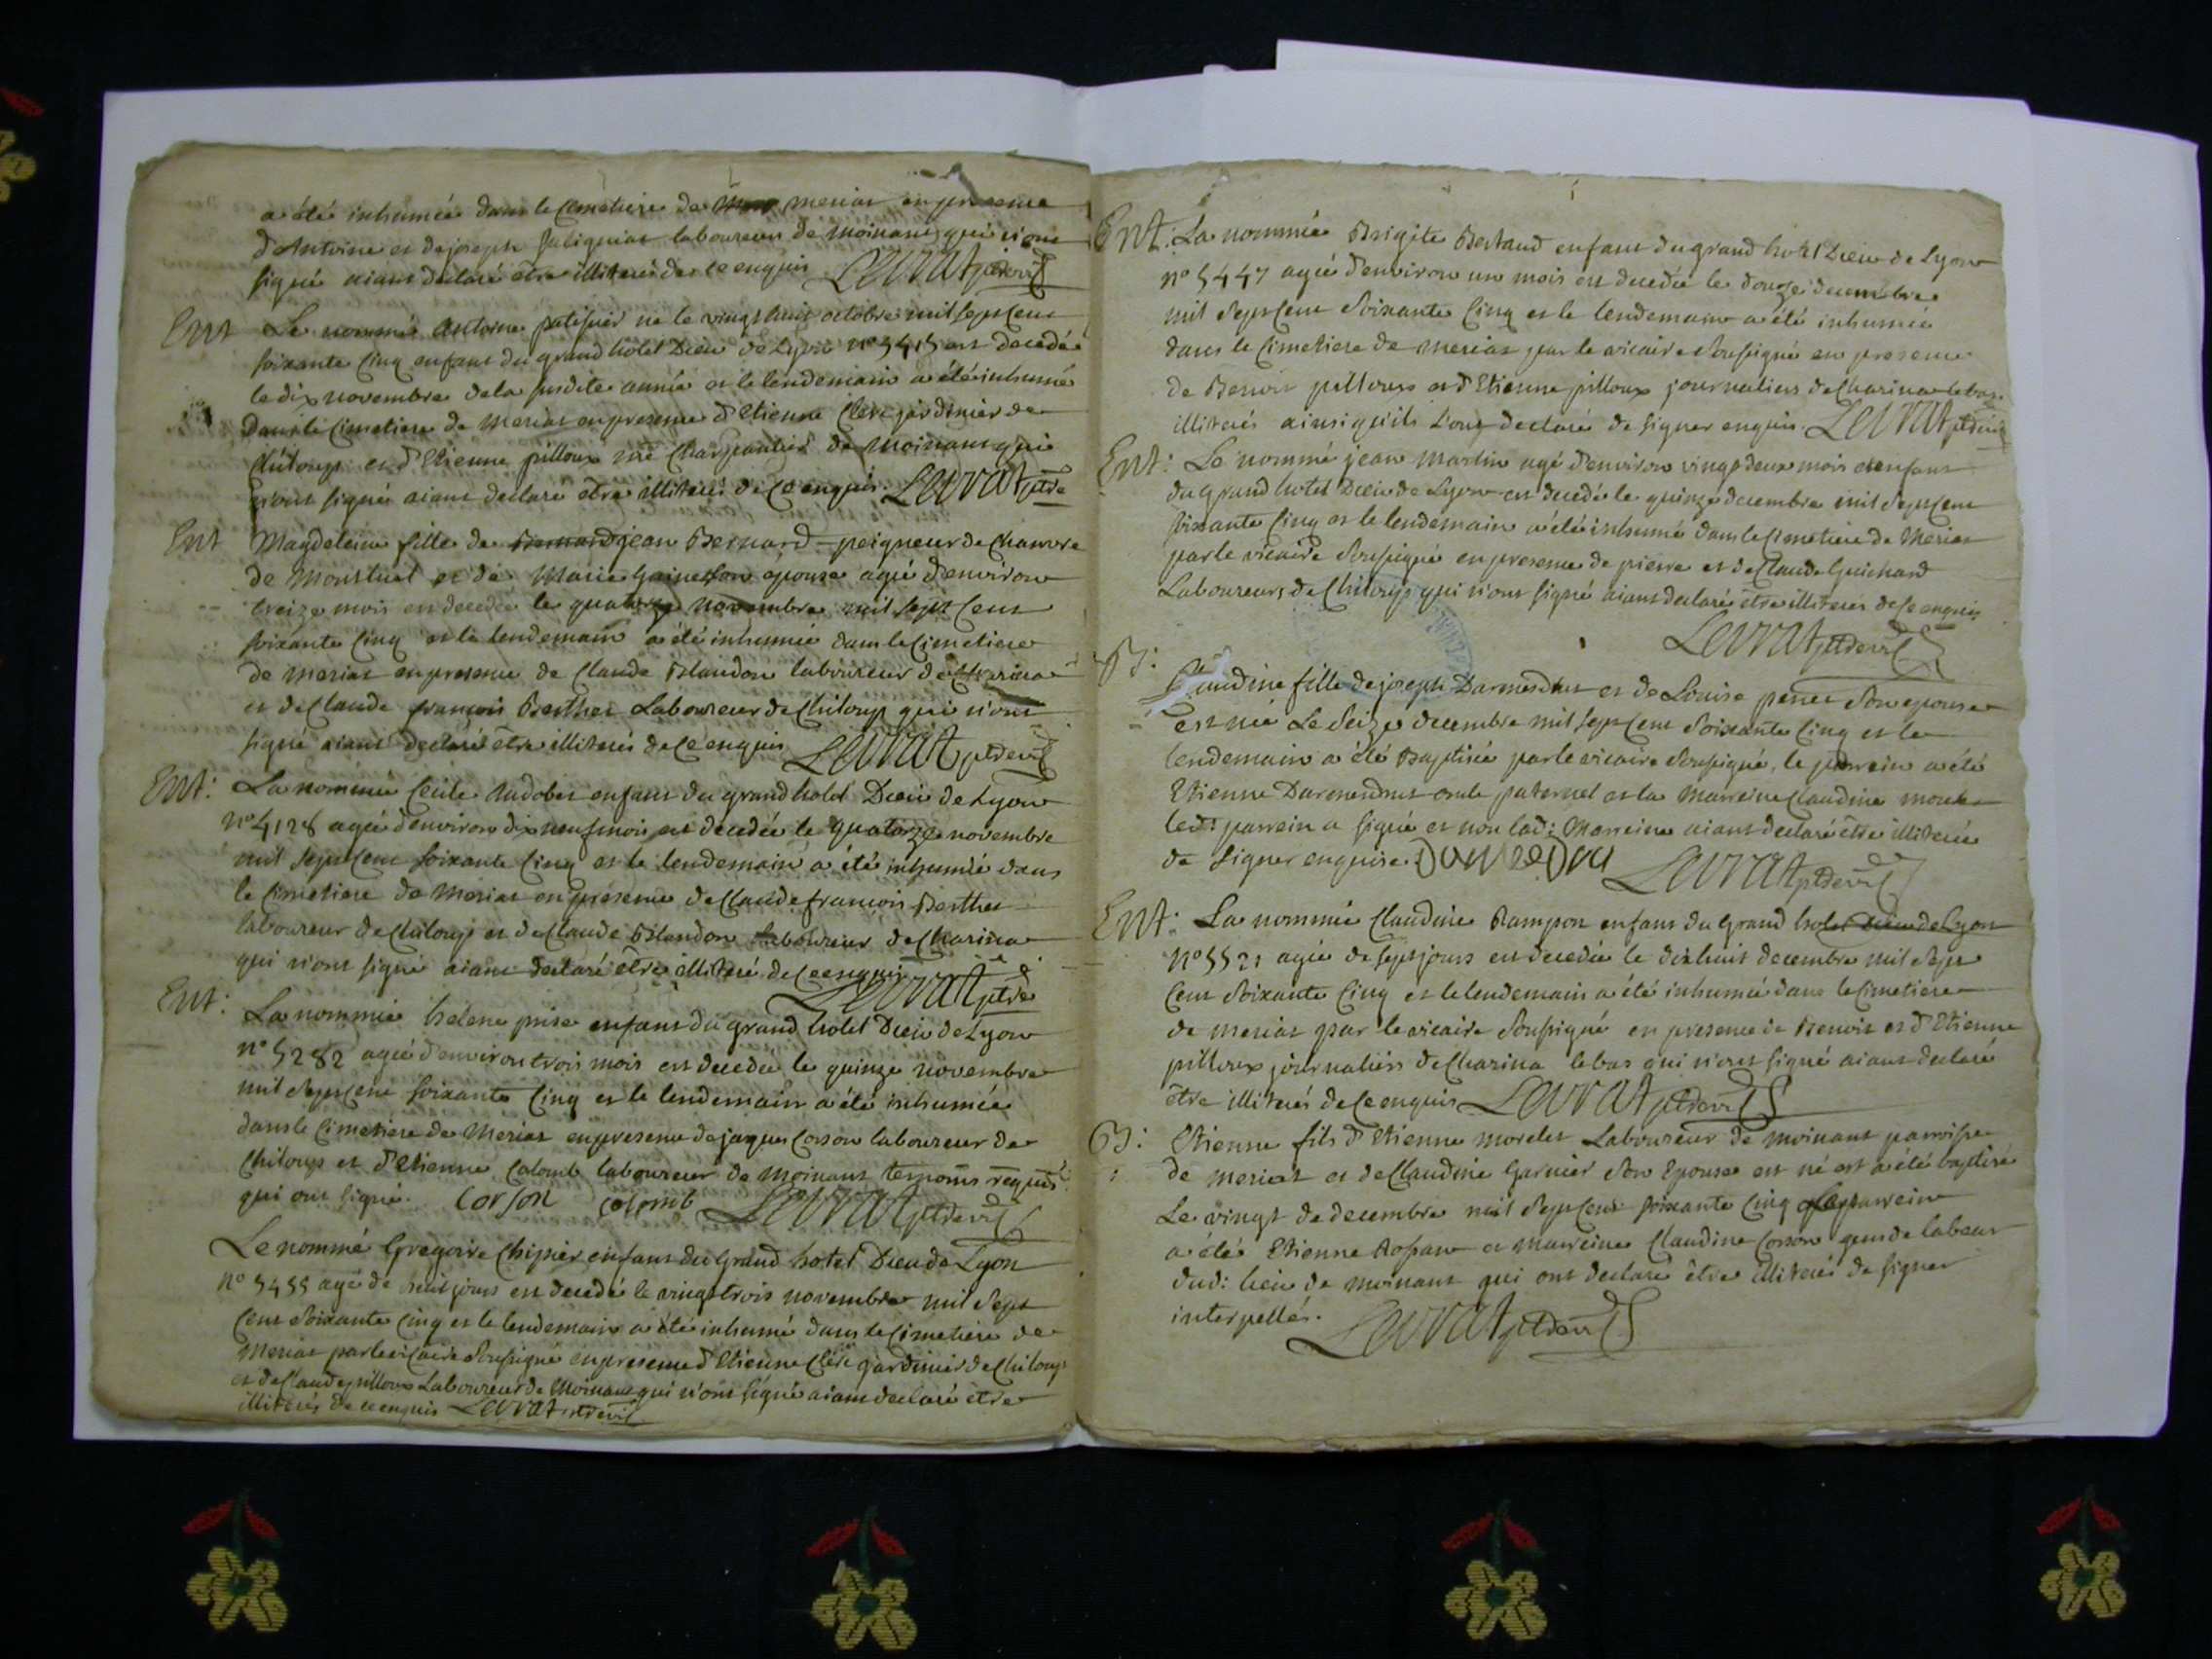 a été inhumée dans le Cimetiere de meriat en presence
d'Antoine et de joseph laboureurs de moinant qui n'ont
signé aiant declaré etre illiterés de ce enquis Levrat ptre vic
Ent Le nommé Antoine patissier né le vingt huit octobre mil sept cent
soixante cinq enfant du grand hotel Dieu de Lyon n° 5415 est decedé
le dix novembre de la susdite année et le lendemain a été inhumé
dans le Cimetiere de meriat en presence d'Etienne Clerc jardinier de
Chiloup et d'Etienne pilloux me Charpantier de moinant qui
n'ont signé aiant declaré etre illiterés de ce enquis. Levrat ptre
Ent Magdeleine fille de Bernard jean Bernard peigneur de chanvre
de Montluel et de Marie son epouse agée d'environ
treize mois est decedée le quatorze novembre mil sept cent
soixante cinq et le lendemain a été inhumée dans le Cimetiere
de meriat en presence de Claude Blandon laboureur de Charina
et de Claude françois Berthet Laboureur de Chiloup qui n'ont
signé aiant declaré etre illiterés de ce enquis Levrat ptre vic
Ent: La nommée Cecile Audobet enfant du grand hotel Dieu de Lyon
n° 4128 agée d'environ dix neuf mois est decedée le quatorze novembre
mil sept cent soixante cinq et le lendemain a été inhumée dans
le Cimetiere de Meriat en presence de Claude françois Berthet
laboureur de Chiloup et de Claude Blandon laboureur de Charina
qui n'ont signé aiant declaré être illiteré de ce enquis
Levrat ptre
Ent: La nommée helene prise enfant du grand hotel Dieu de Lyon
n° 5282 agée d'environ trois mois est decedée le quinze novembre
mil sept cent soixante cinq et le lendemain a été inhumée
dans le Cimetiere de Meriat en presence de jaques Corson laboureur de
Chiloup et d'Etienne Colomb laboureur de moinant temoins requis
qui ont signé. Corson colomb Levrat ptre vic
Le nommé Gregoire Chipier enfant du Grand hotel Dieu de Lyon
n° 5455 agé de huit jours est decedé le vingt trois novembre mil sept
cent soixante cinq et le lendemain a été inhumé dans le Cimetiere de
Meriat par le vicaire soussigné en presence d'Etienne Clerc jardinier de Chiloup
et de Claude pilloux Laboureur de Moinant qui n'ont signé aiant declaré etre
illiterés de ce enquis Levrat ptre vic
Ent: La nommée Brigite Bertaud enfant du grand hotel Dieu de Lyon
n° 5447 agée d'environ un mois est decedée le douze decembre
mil sept cent soixante cinq et le lendemain a été inhumée
dans le Cimetiere de meriat par le vicaire soussigné en presence
de Benoit pilloux et d'Etienne pilloux journaliers de Charina le bas
illiterés ainsi qu'ils l'ont declaré de signer enquis. Levrat ptre vic
Ent: Le nommé jean Martin agé d'environ vingt deux mois enfant
du grand hotel Dieu de Lyon est decedé le quinze decembre mil sept cent
soixante cinq et le lendemain a été inhumé dans le Cimetiere de Meriat
par le vicaire soussigné en presence de pierre et de Claude Guichard
Laboureurs de Chiloup qui n'ont signé aiant declaré être illiterés de ce enquis
Levrat ptre vic
B:
Claudine fille de joseph Darmendrat et de Louise perret son epouse
est née Le seize decembre mil sept cent soixante cinq et le
lendemain a été Baptisée par le vicaire soussigné, le parrein a été
Etienne Darmendrat oncle paternel et la Marreine Claudine
led: parrein a signé et non lad: Marreine aiant declaré être illiterée
de signer enquise. Levrat ptre vic
Ent: La nommée Claudine Rampon enfant du Grand hotel Dieu de Lyon
n° 5521 agée de sept jours est decedée le dix huit decembre mil sept
cent soixante cinq et le lendemain a été inhumée dans le Cimetiere
de meriat par le vicaire soussigné en presence de Benoit et d'Etienne
pilloux journaliers de Charina le bas qui n'ont signé aiant declaré
être illiterés de ce enquis Levrat ptre vic
B: Etienne fils d'Etienne morelet Laboureur de moinant parroisse
de meriat et de Claudine Garnier son Epouse est né et a été baptisé
Le vingt de decembre mil sept cent soixante cinq le parrein
a été Etienne et marreine Claudine Corson gens de labeur
dud: lieu de moinant qui ont declaré être illiterés de signer
interpellés. Levrat ptre vic